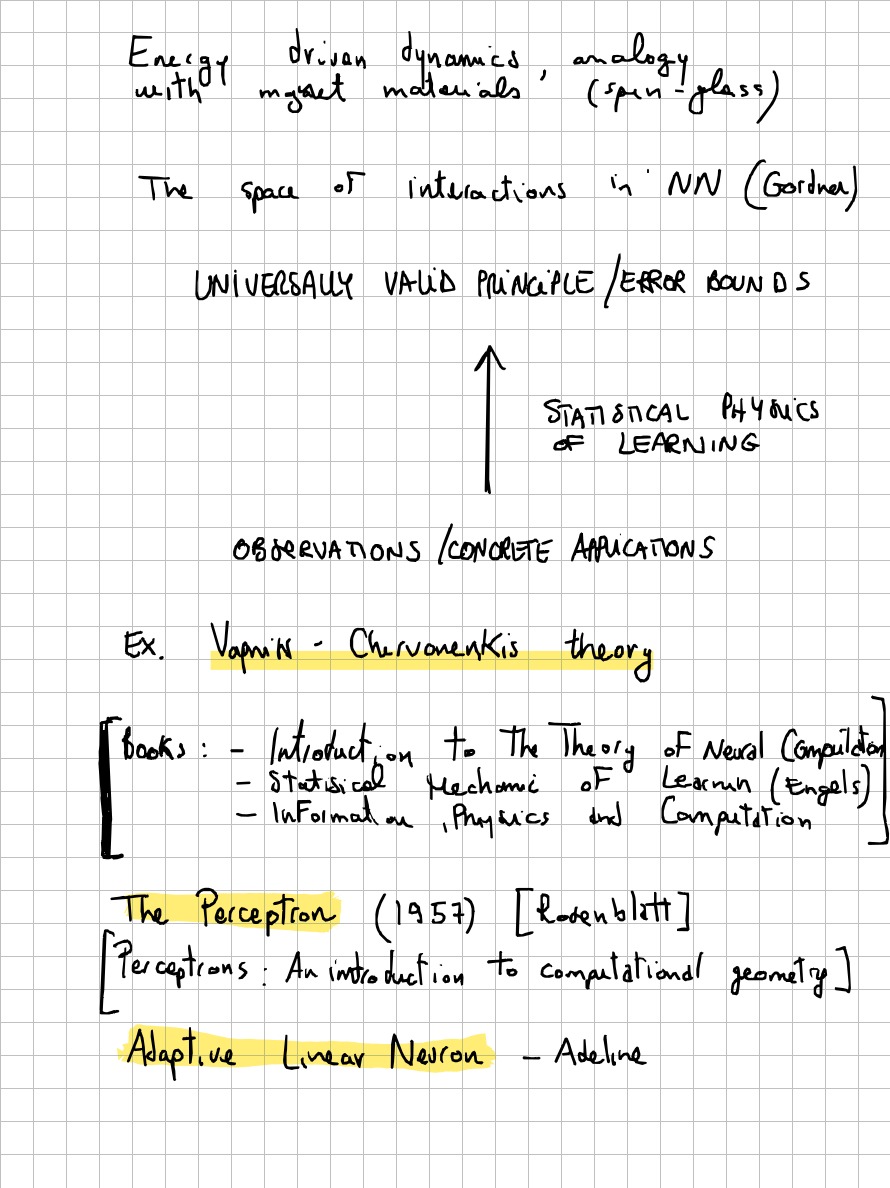 Energy driven dynamics, analogy
with mgnet materials (spin-glass)
The space of interactions in NN (Gordner)
UNIVERSALLY VALID PRINCIPLE/ERROR BOUNDS
STATISTICAL PHYSICS
OF LEARNING
OBSERVATIONS/CONCRETE APPLICATIONS
Ex. Vapnik - Chervonenkis theory
[Books: - Introduction to The Theory of Neural Computation
- Statisical Mechanic of Learnin (Engels)
- Information, Physics and Computation]
The Perceptron (1957) [Rosenblatt]
[Perceptrons: An introduction to computational geometry]
Adaptive Linear Neuron - Adeline